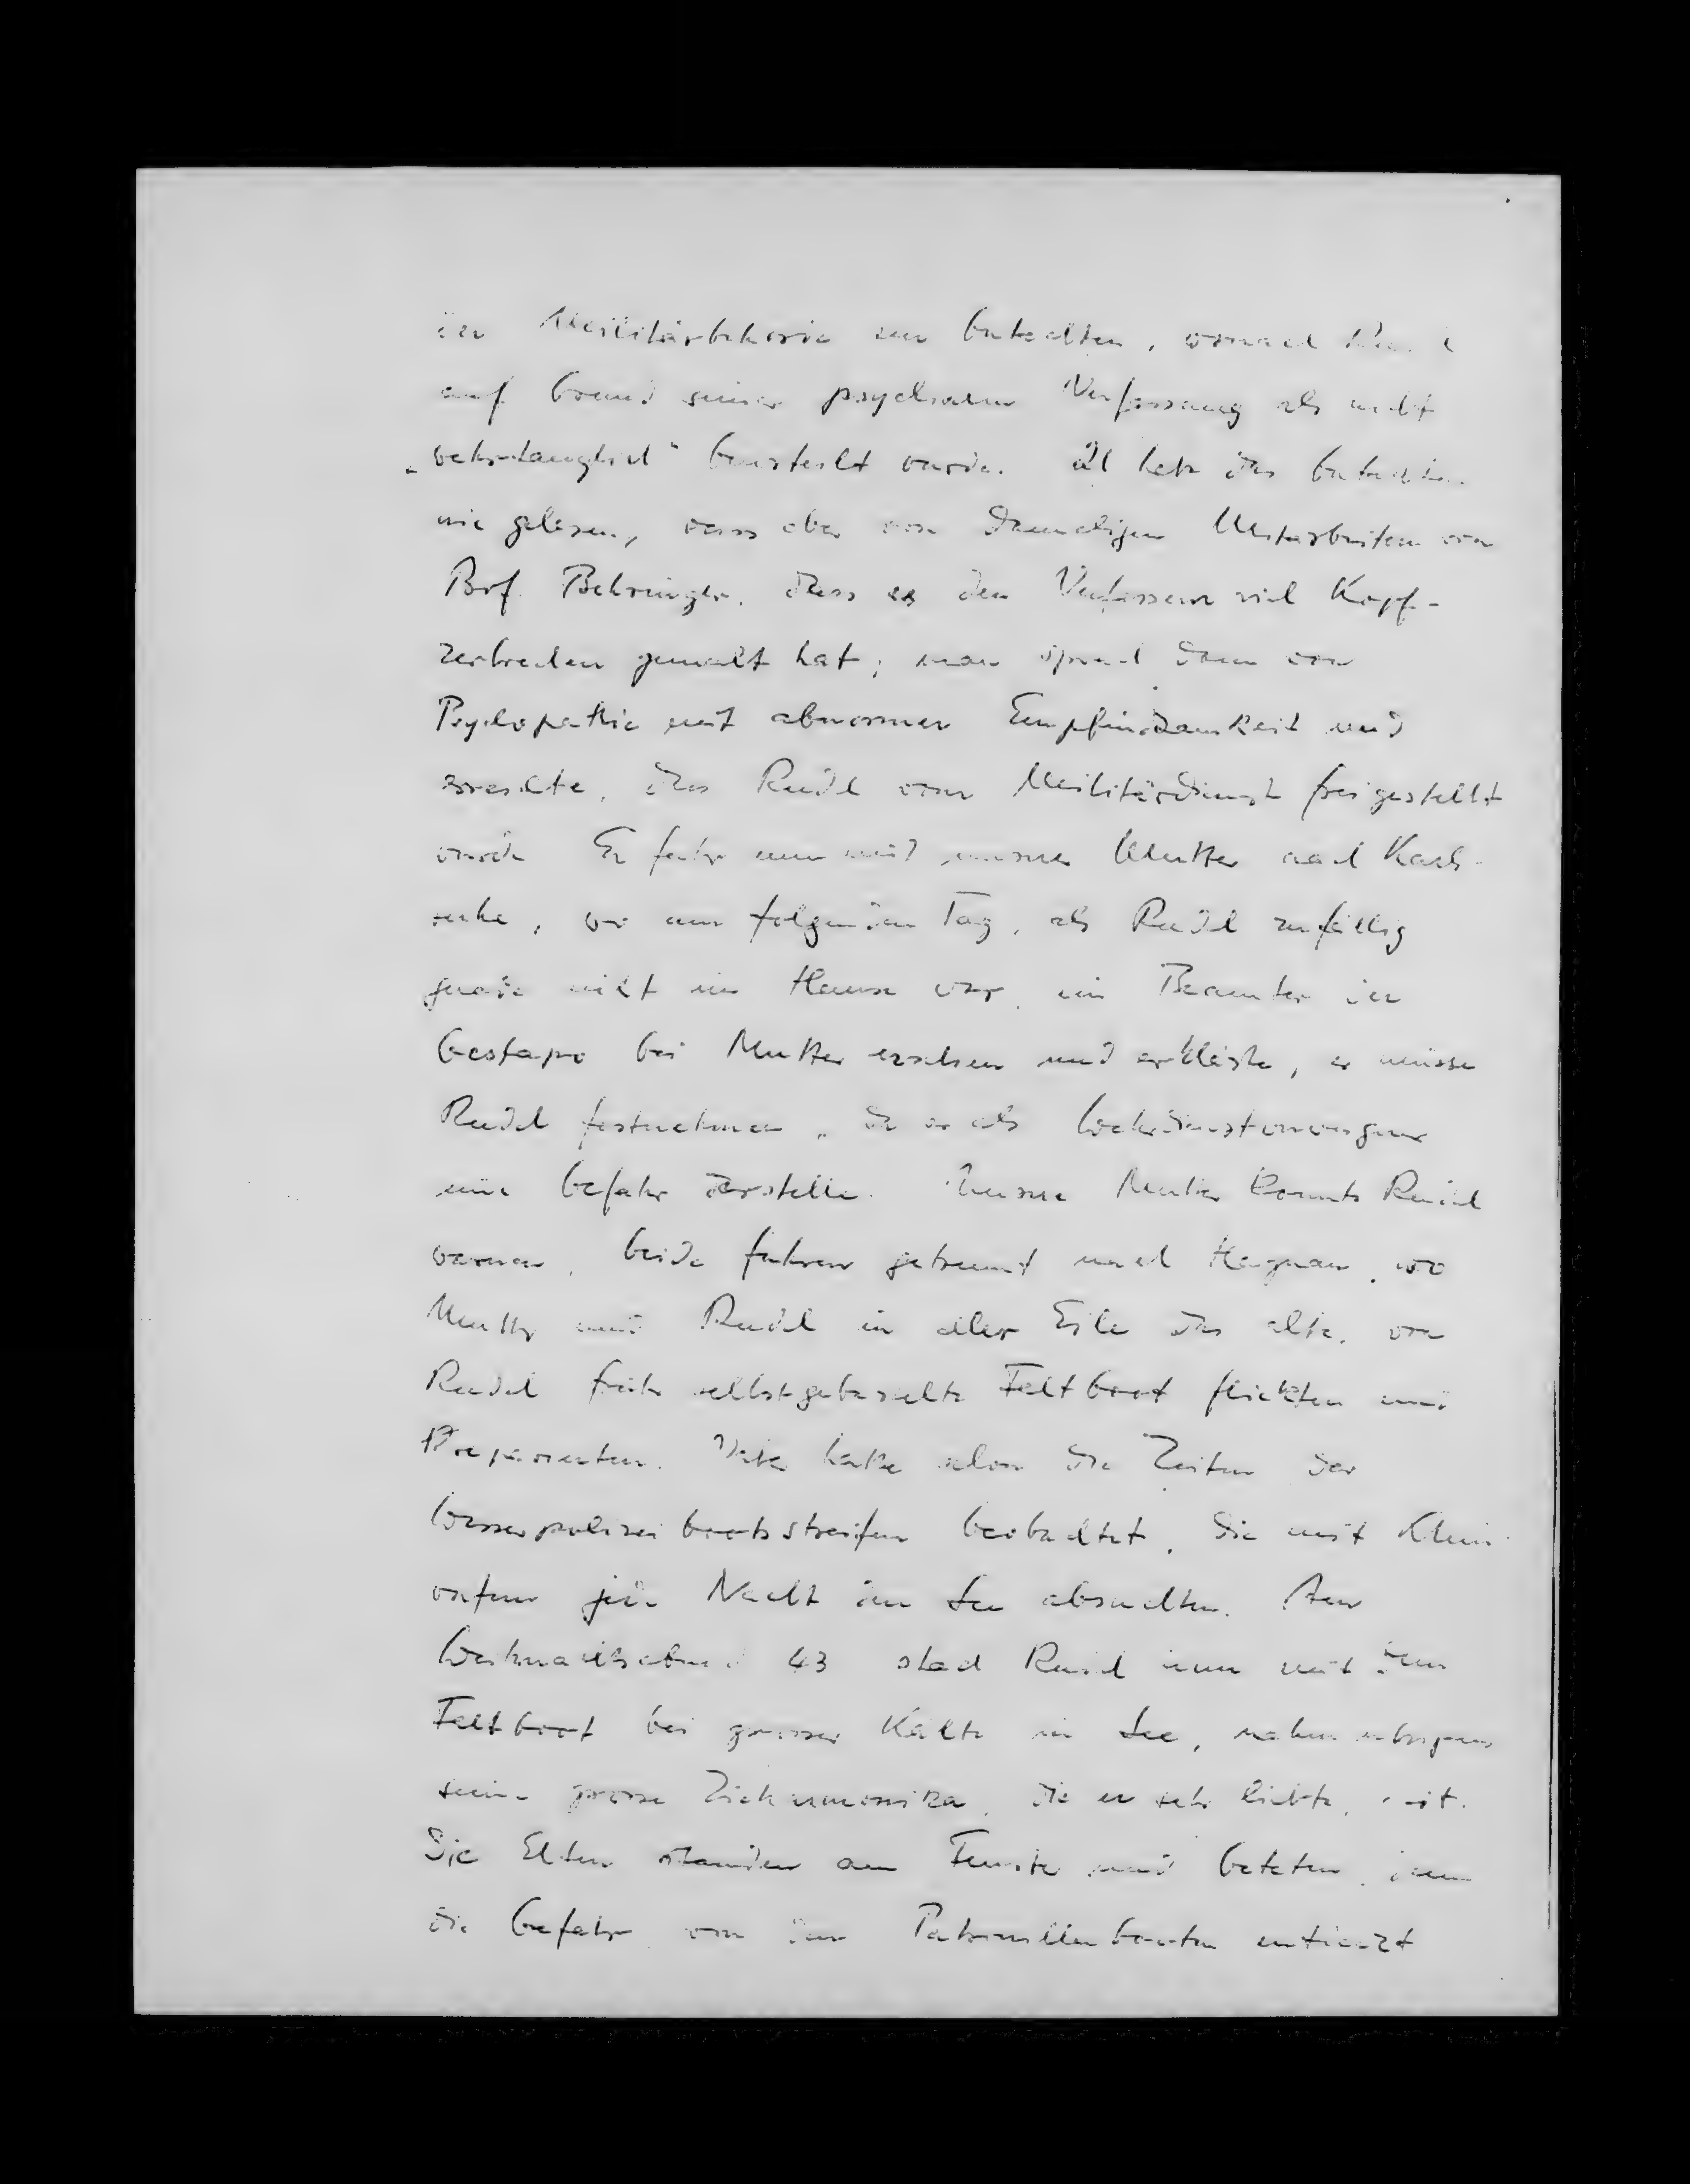 der Militärbehörde ein Gutachten, wonach Rudl
auf Grund seiner psychischen Verfassung als nicht
„wehrtauglich" beurteilt wurde. Ich habe das Gutachten
nie gelesen, weiss aber von damaligen Mitarbeitern von
Prof. Behringer, dass es den Verfassern viel Kopf-
zerbrechen gemacht hat; man sprach dann von
Psychopathie mit abnormer Empfindsamkeit und
erreichte, dass Rudl vom Militärdienst freigestellt
wurde Er fuhr nun mit unserer Mutter nach Karls-
ruhe, wo am folgenden Tag, als Rudl zufällig
gerade nicht im Hause war, ein Beamter der
Gestapo bei Mutter erschien und erklärte, er müsse
Rudl festnehmen, da er als Wehrdienstverweigerer
eine Gefahr darstelle. Unsere Mutter konnte Rudl
warnen, beide fuhren getrennt nach Hagnau, wo
Mutter und Rudl in aller Eile das alte, von
Rudl früh selbstgebastelte Faltboot flickten und
präparierten. Vater hatte schon die Zeiten der
Wasserpolizeibootsstreifen beobachtet, die mit Schein-
werfern jede Nacht den See absuchten. Am
Weihnachtsabend 43 stach Rudl nun mit dem
Faltboot bei grosser Kälte in See, nahm übrigens
seine grosse Ziehharmonika, die er sehr liebte, mit.
Die Eltern standen am Fenster und beteten, denn
die Gefahr von den Patrouillenbooten entdeckt